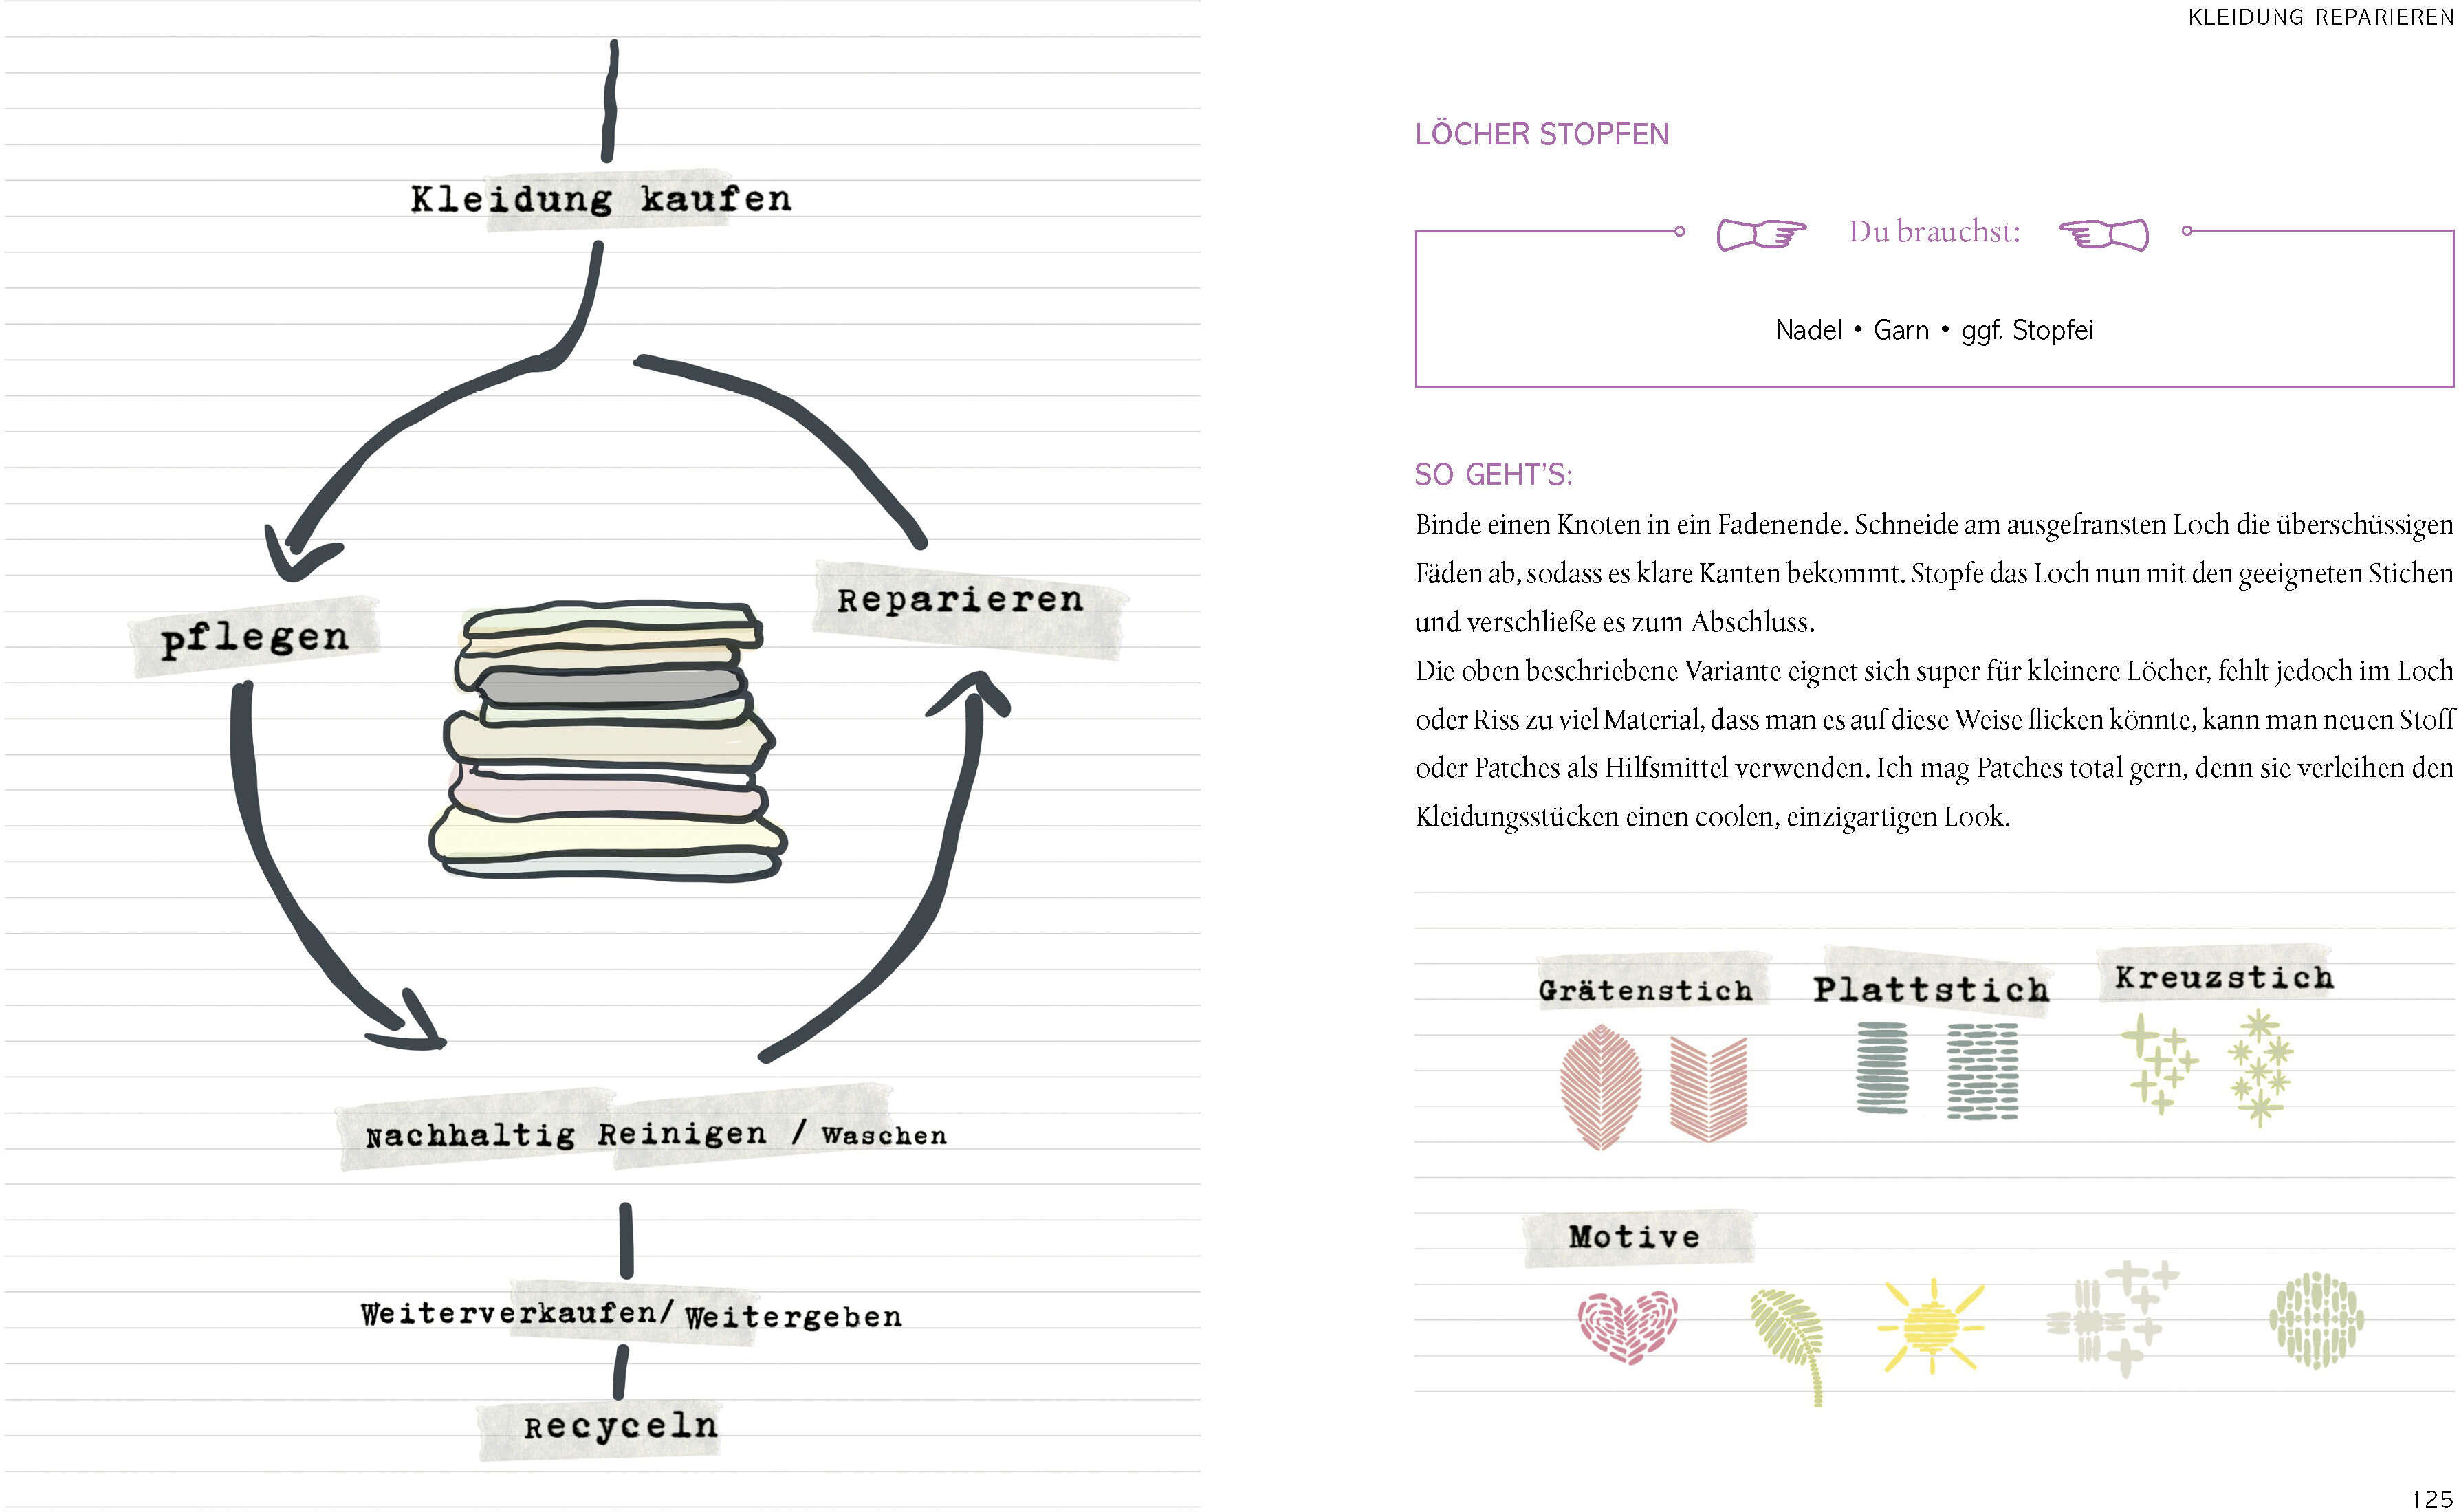 Kleidung kaufen
pflegen
Reparieren
Nachhaltig Reinigen / Waschen
Weiterverkaufen/ Weitergeben
Recyceln
KLEIDUNG REPARIEREN
LÖCHER STOPFEN
Du brauchst:
Nadel • Garn • ggf. Stopfei
SO GEHT'S:
Binde einen Knoten in ein Fadenende. Schneide am ausgefransten Loch die überschüssigen
Fäden ab, sodass es klare Kanten bekommt. Stopfe das Loch nun mit den geeigneten Stichen
und verschließe es zum Abschluss.
Die oben beschriebene Variante eignet sich super für kleinere Löcher, fehlt jedoch im Loch
oder Riss zu viel Material, dass man es auf diese Weise flicken könnte, kann man neuen Stoff
oder Patches als Hilfsmittel verwenden. Ich mag Patches total gern, denn sie verleihen den
Kleidungsstücken einen coolen, einzigartigen Look.
Grätenstich Plattstich Kreuzstich
Motive
125